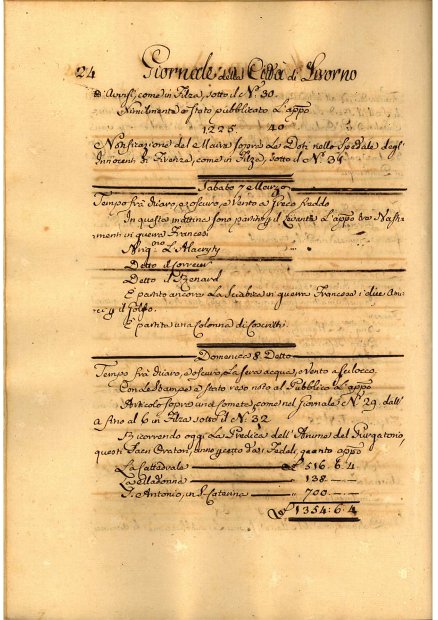 24 Giornale della Città di Livorno
d'Avvisi, come in Filza, sotto il N.º 30.
Similmente è stato pubblicato l'app.º
1225 40
Notificazione del Maire sopra le Doti nello Spedale degl'
Innocenti di Firenze, come in Filza, sotto il N.º 31
Sabato 7 Marzo
Tempo frà chiaro, e oscuro, e Vento a Greco freddo
In questa mattina sono partiti p. il Levante l'app.º tre Basti-
menti in guerra Francesi
Detto il Corriere
Detto il Renard
È partito ancora la Sciabica in guerra Francese i due Ami-
ci p. il Golfo.
È partita una Colonna di Coscritti.
Domenica 8. Detto
Tempo frà chiaro, e oscuro, e la sera acqua, e Vento a Scilocco.
Con le Stampe è stato reso noto al Pubblico l'app.º
Articolo sopra una Cometa, come nel Giornale N.º 29. dall'
a fino al 6 in Filza sotto il N.º 32
Ricorrendo oggi la Predica dell'Anime del Purgatorio,
questi Sacri Oratori, anno da i Fedeli, quanto app.º
La Cattedrale 516. 6. 4
La Madonna 138. — —
S. Antonio, in S. Caterina 700. — —
1354: 6. 4